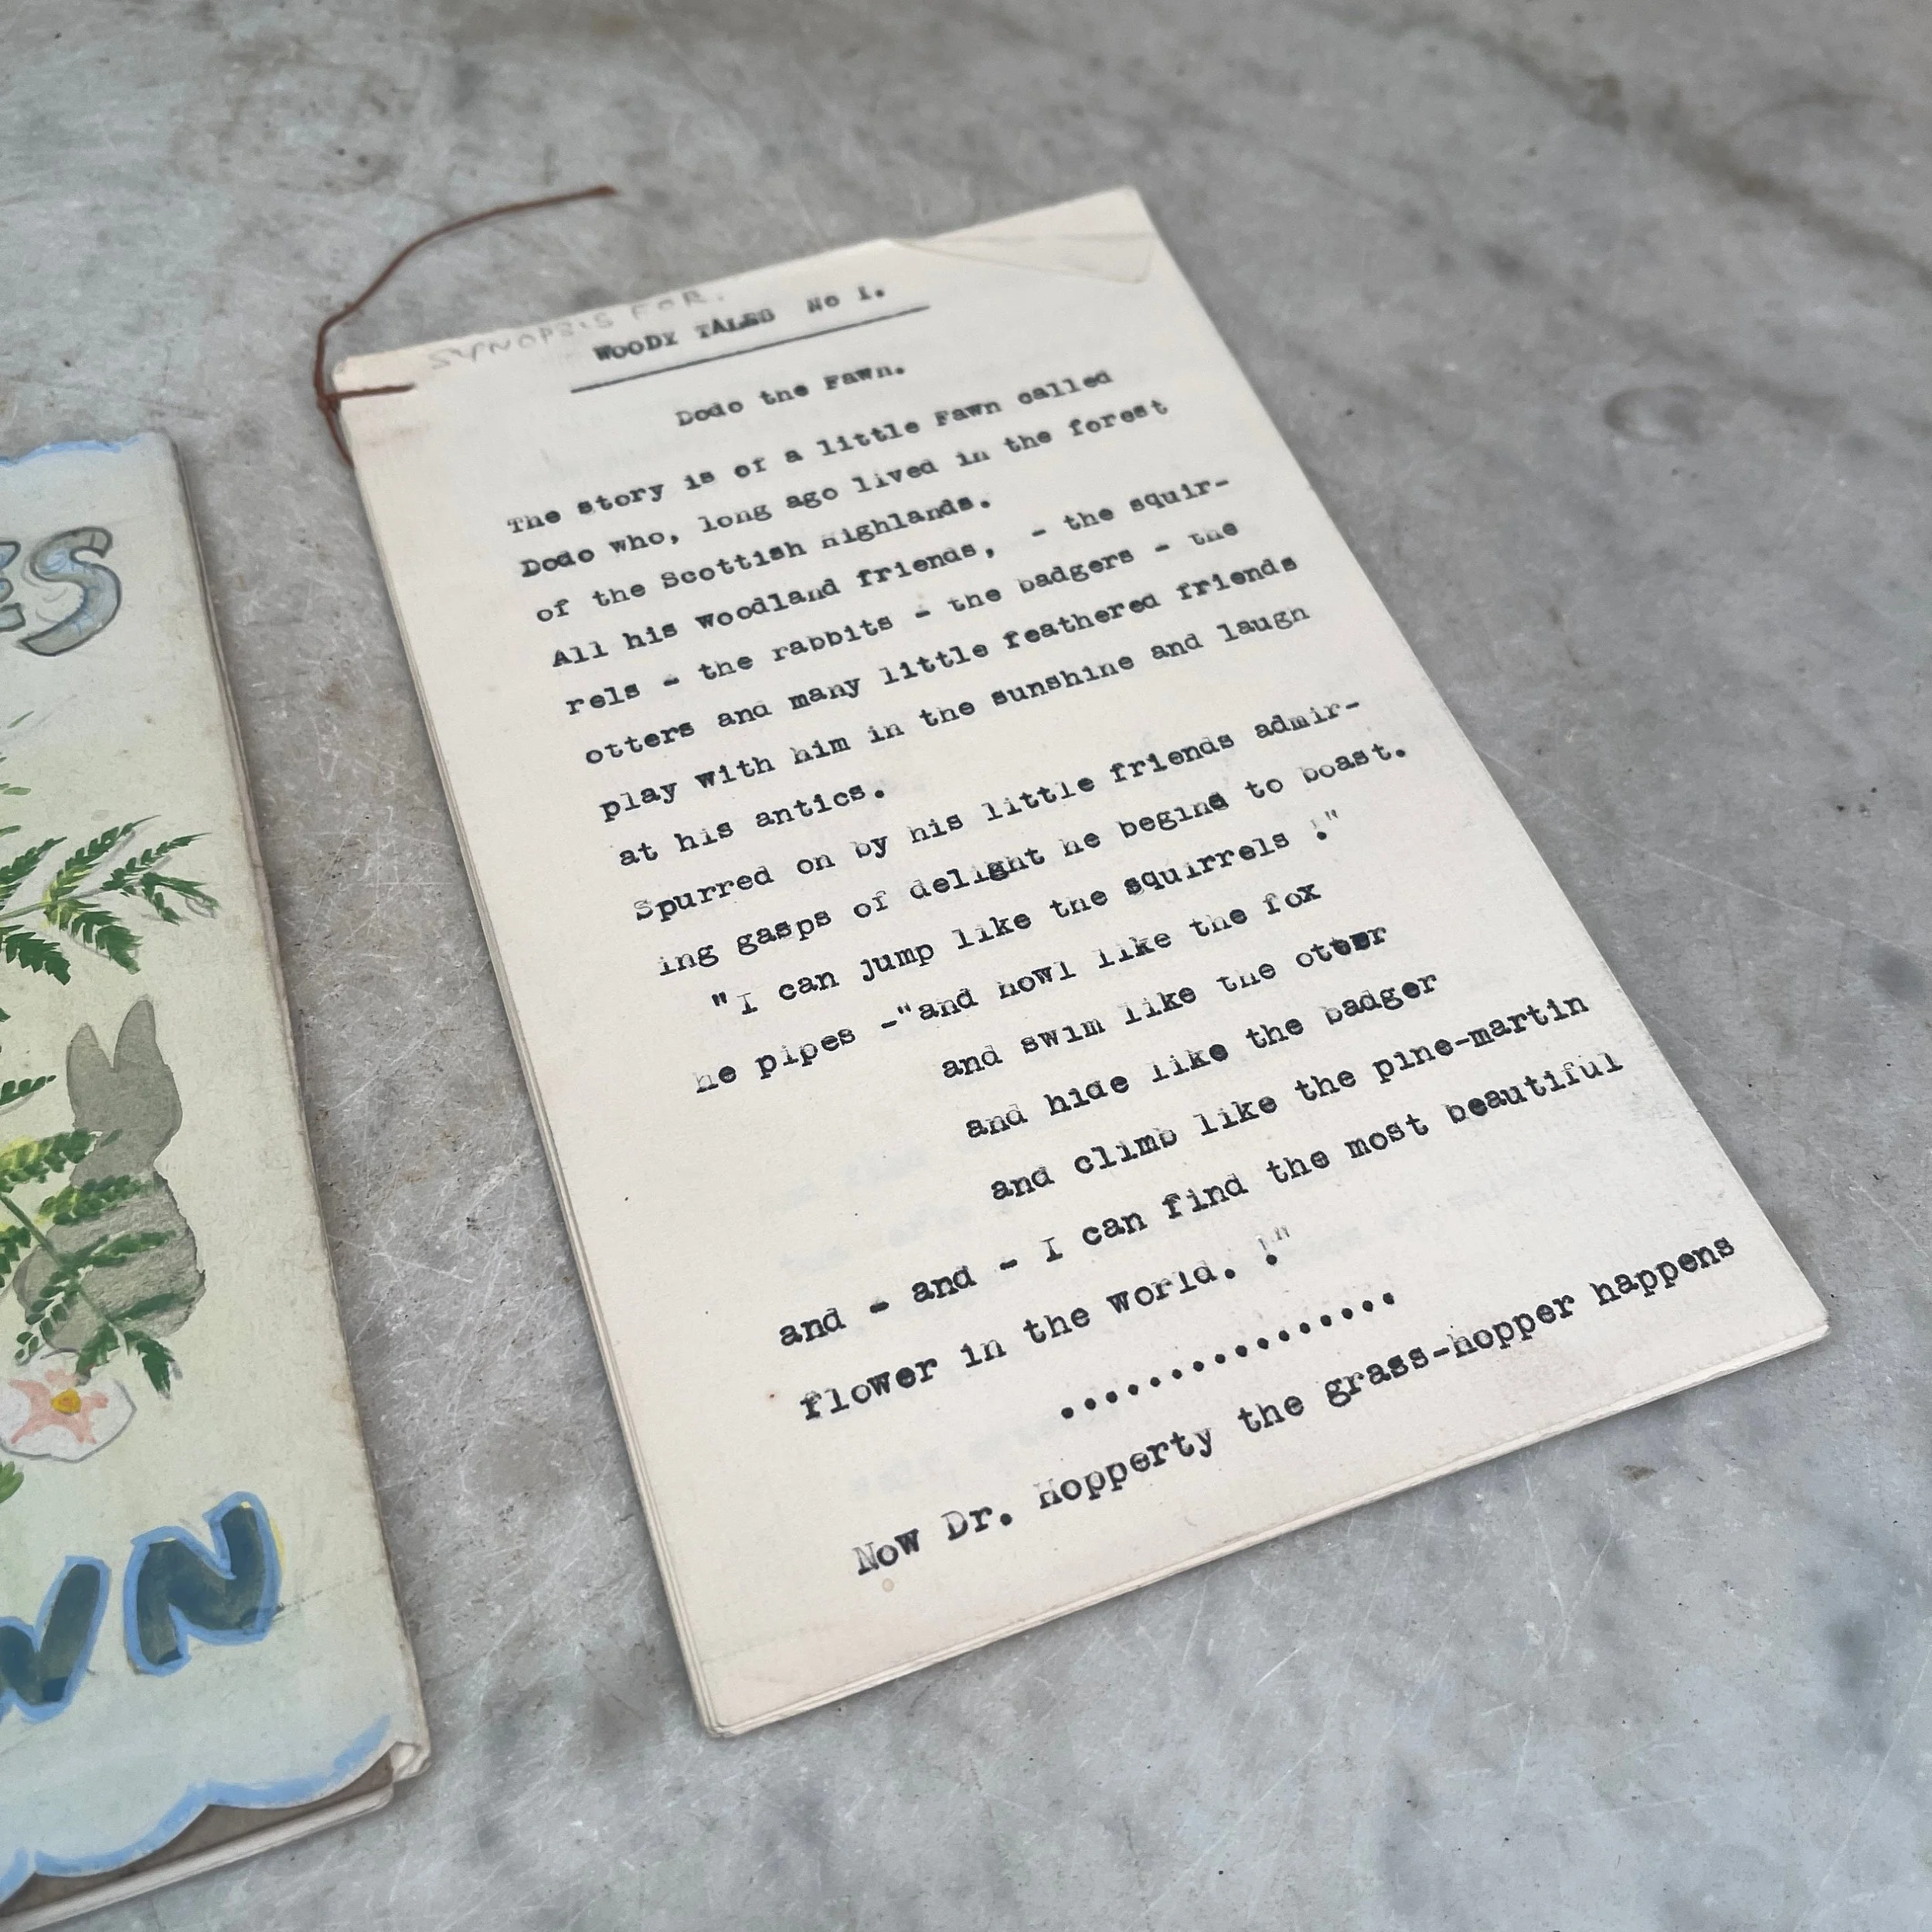 ES
WN
SYNOPSIS FOR.
WOODY TALES No 1.
Dodo the Fawn.
The story is of a little Fawn called
Dodo who, long ago lived in the forest
of the Scottish Highlands.
All his Woodland friends, - the squir-
rels - the rabbits - the badgers - the
otters and many little feathered friends
play with him in the sunshine and laugh
at his antics.
Spurred on by his little friends admir-
ing gasps of delight he begins to boast.
"I can jump like the squirrels !"
he pipes -"and howl like the fox
and swim like the otter
and hide like the badger
and climb like the pine-martin
and - and - I can find the most beautiful
flower in the world. !"
................
Now Dr. Hopperty the grass-hopper happens